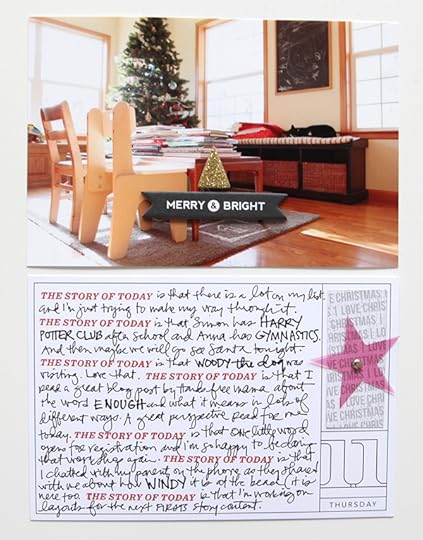 MERRY & BRIGHT
THE STORY OF TODAY is that there is a lot on my list
and I'm just trying to make my way through it.
THE STORY OF TODAY is that Simon has HARRY
POTTER CLUB after school and Anna has GYMNASTICS.
And then maybe we will go see Santa tonight.
THE STORY OF TODAY is that WOODY the dog was
visiting. Love that. THE STORY OF TODAY is that I
read a great blog post by hands free mama about
the word ENOUGH and what it means in lots of
different ways. A great perspective read for me
today. THE STORY OF TODAY is that ONE little word
opens for registration and I'm so happy to be doing
that workshop again. THE STORY OF TODAY is that
I chatted with my parents on the phone as they shared
with me about how WINDY it is at the beach (it is
here too. THE STORY OF TODAY is that I'm working on
layouts for the next FIRSTS story content.
I LOVE CHRISTMAS
11
THURSDAY